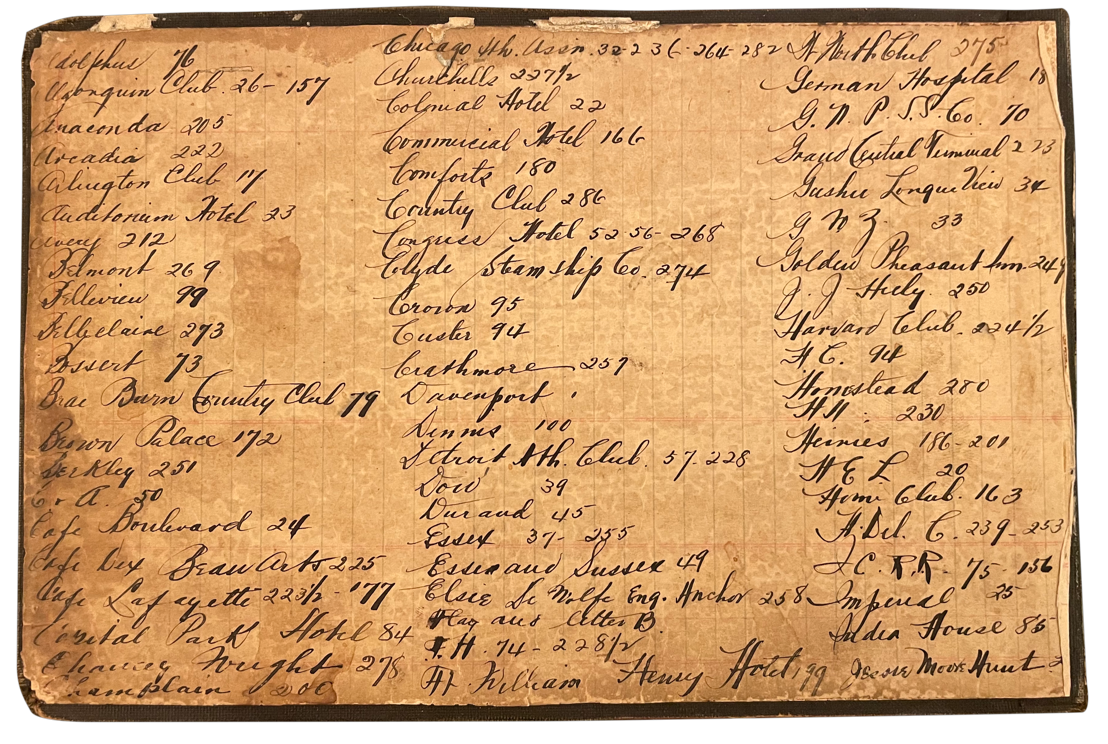 Adolphus 76
Algonquin Club. 26 - 157
Anaconda 205
Arcadia 222
Arlington Club 17
Auditorium Hotel 23
Avery 212
Belmont 269
Belleview 99
Belleclaire 273
Bossert 73
Brae Burn Country Club 79
Brown Palace 172
Berkley 251
C & A. 50
Cafe Boulevard 24
Cafe Dex Beau Arts 225
Cafe Lafayette 223½ - 177
Central Park Hotel 84
Chancey Wright 278
Champlain 200
Chicago Ath. Assn. 32-236-264-282
Churchills 227½
Colonial Hotel 22
Commercial Hotel 166
Comforts 180
Country Club 286
Congress Hotel 52-56-268
Clyde Steamship Co. 274
Crown 95
Custer 94
Crathmore 257
Davenport
Dennis 100
Detroit Ath. Club. 57-228
Dow 39
Durand 45
Essex 37-255
Essex and Sussex 49
Elsie De Wolfe Eng. Anchor 258
Flag and letter B.
F. H. 74-228½
Ft. William Henry Hotel 199
Ft Worth Club 275
German Hospital 18
G. N. P. S. S. Co. 70
Grand Central Terminal 223
Gushu Longue View 34
G N Z. 33
Golden Pheasant Inn. 249
J. J. Hely. 250
Harvard Club. 224½
H C. 94
Homestead 280
H H. 230
Heinies 186-201
H E L 20
Home Club. 163
H. Del. C. 239-253
I C. R. R. 75-156
Imperial 25
India House 85
Jessie Moore Hunt 2